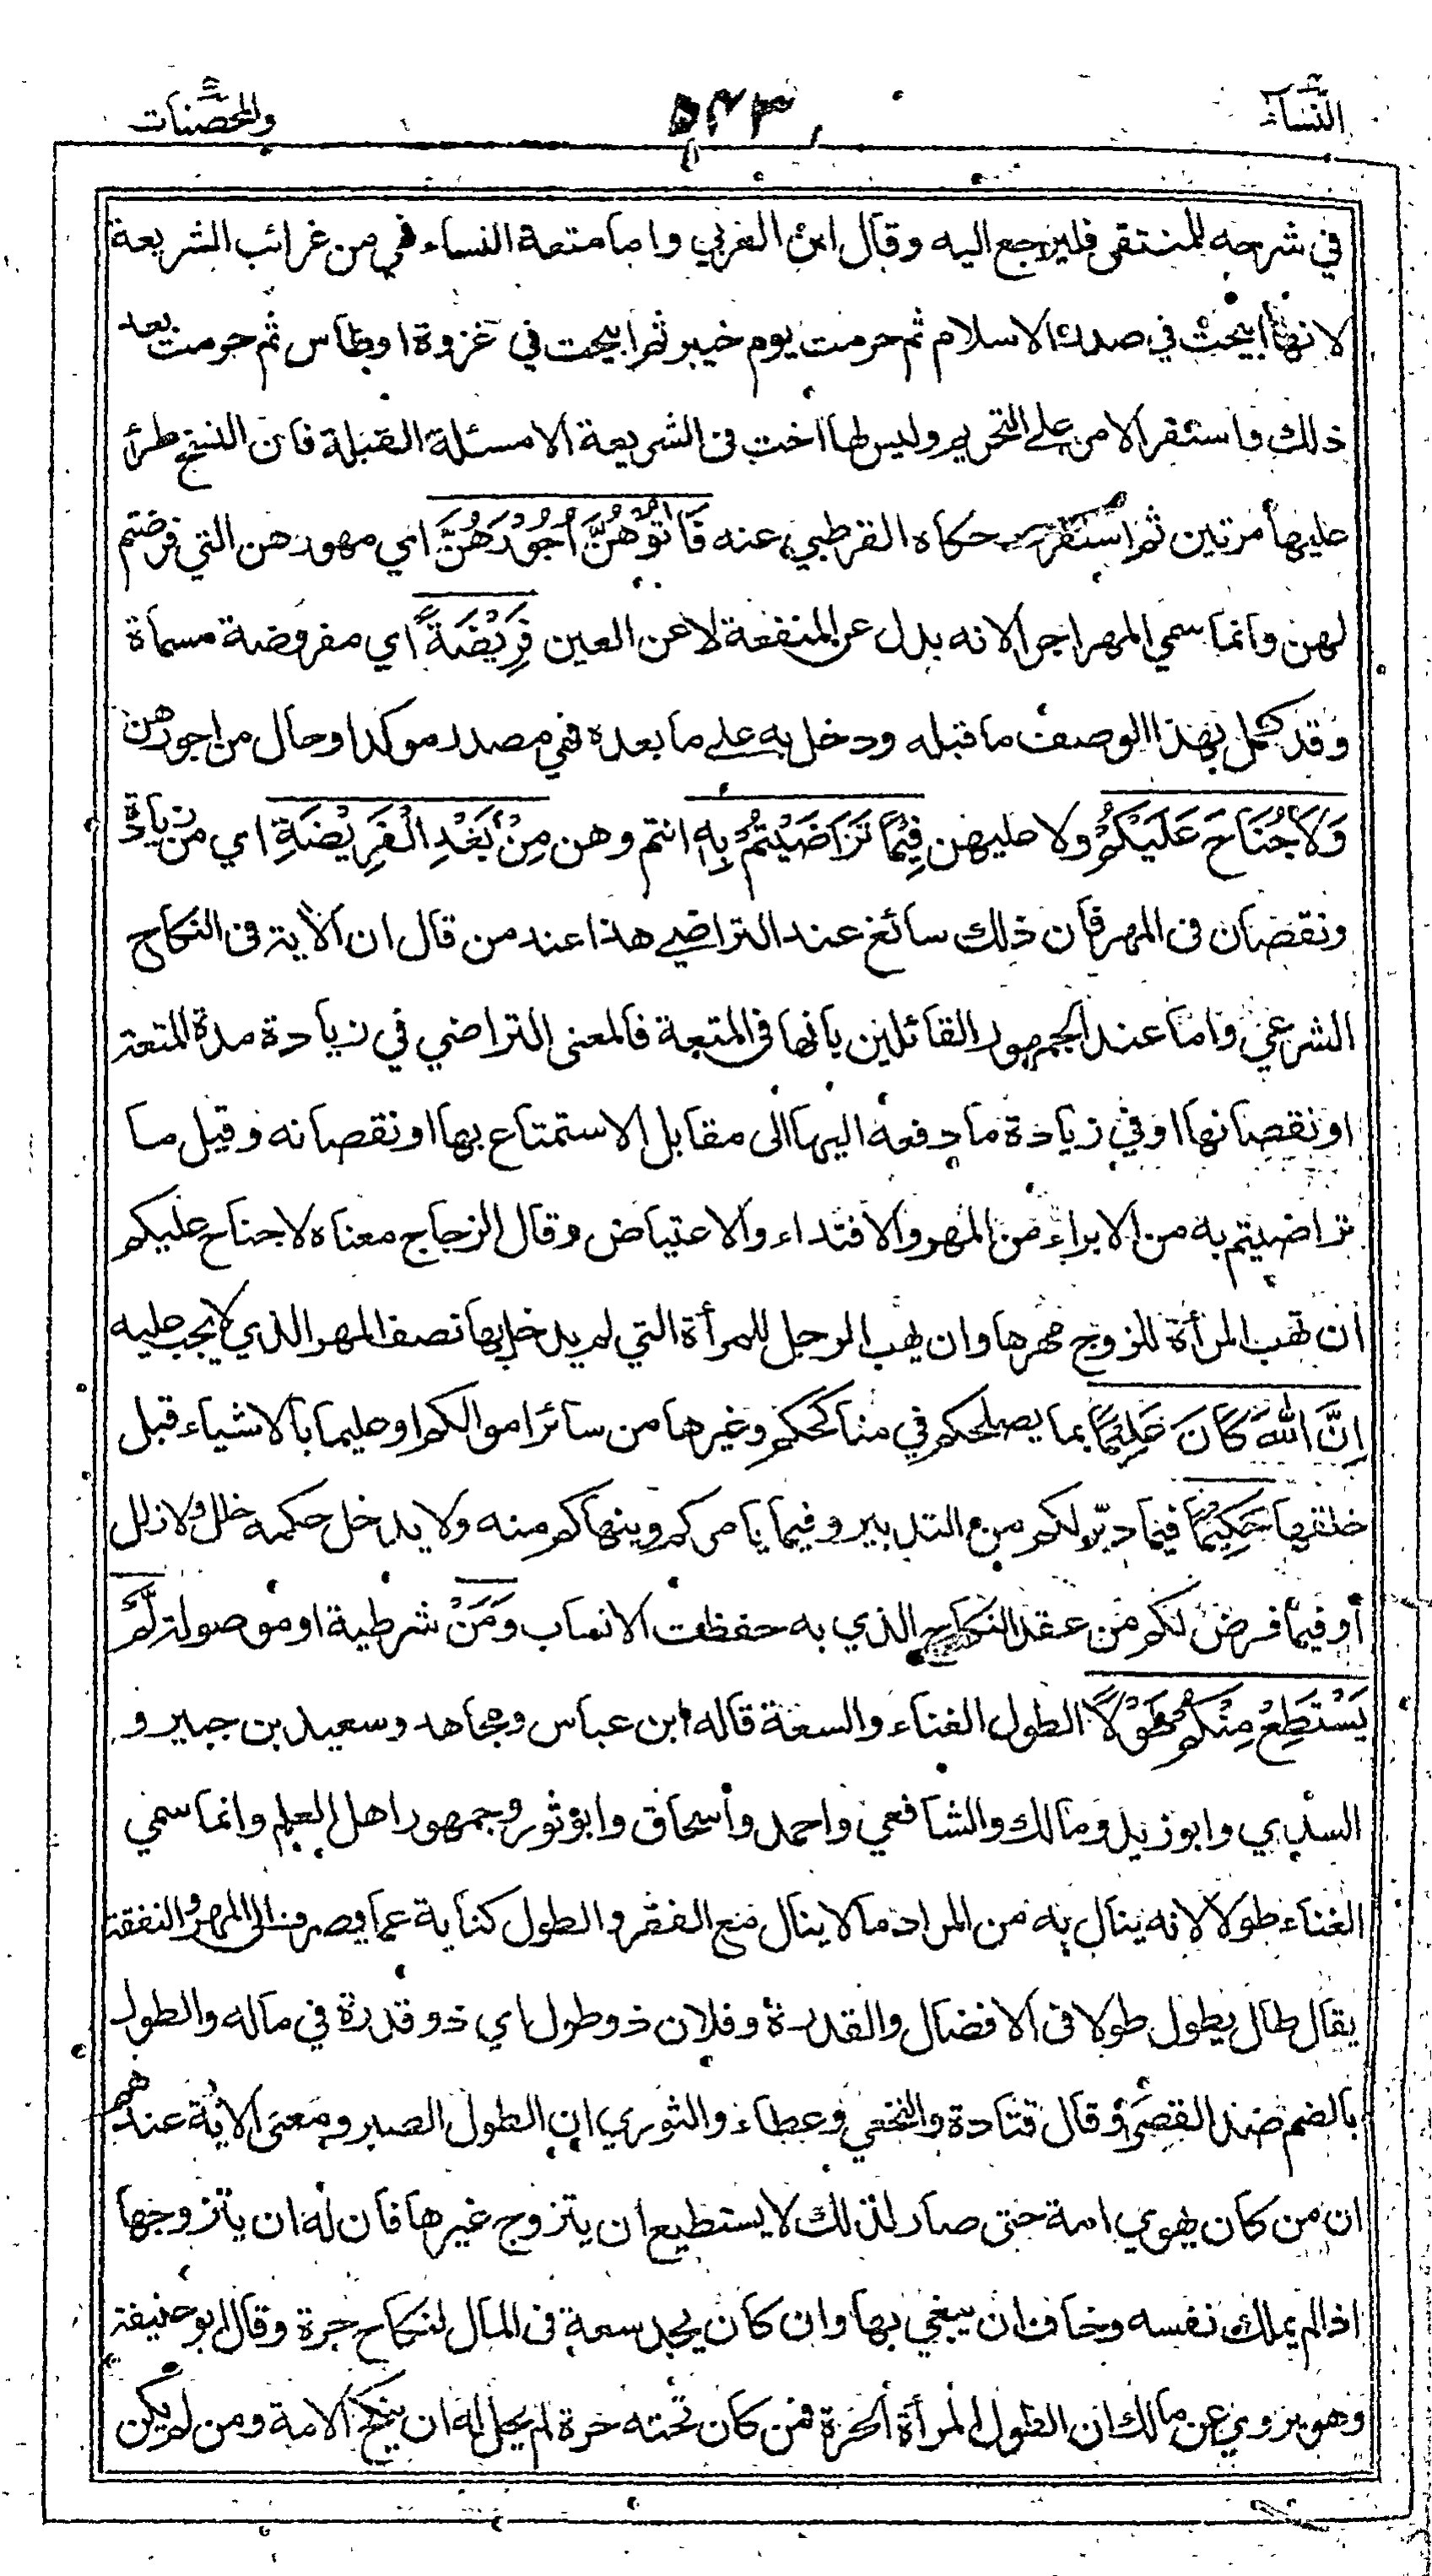 النساء ٥٤٣ والمحصنات
في شرحه للمنتقى فليرجع اليه وقال ابن العربي واما متعة النساء فهي من غرائب الشريعة
لانها ابيحت في صدر الاسلام ثم حرمت يوم خيبر ثم ابيحت في غزوة اوطاس ثم حرمت بعد
ذلك واستقر الامر على التحريم وليس لها اخت في الشريعة الا مسئلة القبلة فان النسخ طرأ
عليها مرتين ثم استقرت حكاه القرطبي عنه فَآتُوْهُنَّ اُجُوْرَهُنَّ اي مهورهن التي فرضتم
لهن وانما سمي المهر اجرا لانه بدل عن المنفعة لا عن العين فَرِيْضَةً اي مفروضة مسماة
وقد كمل بهذا الوصف ما قبله ودخل به على ما بعده فهي مصدر موكد او حال من اجورهن
وَلَا جُنَاحَ عَلَيْكُمْ ولا عليهن فِيْمَا تَرَاضَيْتُمْ بِهِ انتم وهن مِنْ بَعْدِ الْفَرِيْضَةِ اي من زيادة
ونقصان في المهر فان ذلك سائغ عند التراضي هذا عند من قال ان الآية في النكاح
الشرعي واما عند الجمهور القائلين بانها في المتعة فالمعنى التراضي في زيادة مدة المتعة
او نقصانها او في زيادة ما دفعه اليها الى مقابل الاستمتاع بها او نقصانه وقيل ما
تراضيتم به من الابراء من المهر والافتداء والاعتياض وقال الزجاج معناه لا جناح عليكم
ان تهب المرأة للزوج مهرها وان يهب الرجل للمرأة التي لم يدخل بها نصف المهر الذي لا يجب عليه
اِنَّ اللهَ كَانَ عَلِيْمًا بما يصلحكم في مناكحكم وغيرها من سائر اموالكم او عليما بالاشياء قبل
خلقها حَكِيْمًا فيما دبّر لكم من التدبير وفيما يامركم وينهاكم منه ولا يدخل حكمه خلل ولا زلل
أو فيما فرض لكم من عقد النكاح الذي به حفظت الانساب وَمَنْ شرطية او موصولة لَّمْ
يَسْتَطِعْ مِنْكُمْ طَوْلًا الطول الغناء والسعة قاله ابن عباس ومجاهد وسعيد بن جبير و
السدي وابو زيد ومالك والشافعي واحمد واسحاق وابو ثور وجمهور اهل العلم وانما سمي
الغناء طولا لانه ينال به من المراد ما لا ينال مع الفقر والطول كناية عما يصرف الى المهر والنفقة
يقال طال يطول طولا في الافضال والقدرة وفلان ذو طول اي ذو قدرة في ماله والطول
بالضم ضد القصر وقال قتادة والنخعي وعطاء والثوري ان الطول الصبر ومعنى الآية عندهم
ان من كان يهوي امة حتى صار لذلك لا يستطيع ان يتزوج غيرها فان له ان يتزوجها
اذا لم يملك نفسه وخاف ان يبغي بها وان كان يجد سعة في المال لنكاح حرة وقال ابو حنيفة
وهو يروي عن مالك ان الطول المرأة الحرة فمن كان تحته حرة لم يحل له ان ينكح الامة ومن لم يكن